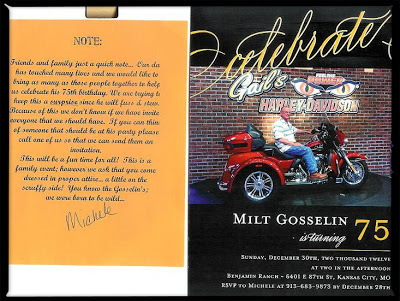 NOTE:
Friends and family just a quick note... Our da
has touched many lives and we would like to
bring as many as those people together to help
us celebrate his 75th birthday. We are trying to
keep this a surprise since he will fuss & stew.
Because of this we don't know if we have invite
everyone that we should have. If you can thin
of someone that should be at his party please
call one of us so that we can send them an
invitation.
This will be a fun time for all! This is a
family event; however we ask that you come
dressed in proper attire... a little on the
scruffy side! You know the Gosselin's;
we were born to be wild...
Michele
celebrate
Gail's
POWER
HARLEY-DAVIDSON
MILT GOSSELIN
is turning 75
SUNDAY, DECEMBER 30TH, TWO THOUSAND TWELVE
AT TWO IN THE AFTERNOON
BENJAMIN RANCH - 6401 E 87TH ST, KANSAS CITY, MO
RSVP TO MICHELE AT 913-683-9873 BY DECEMBER 28TH